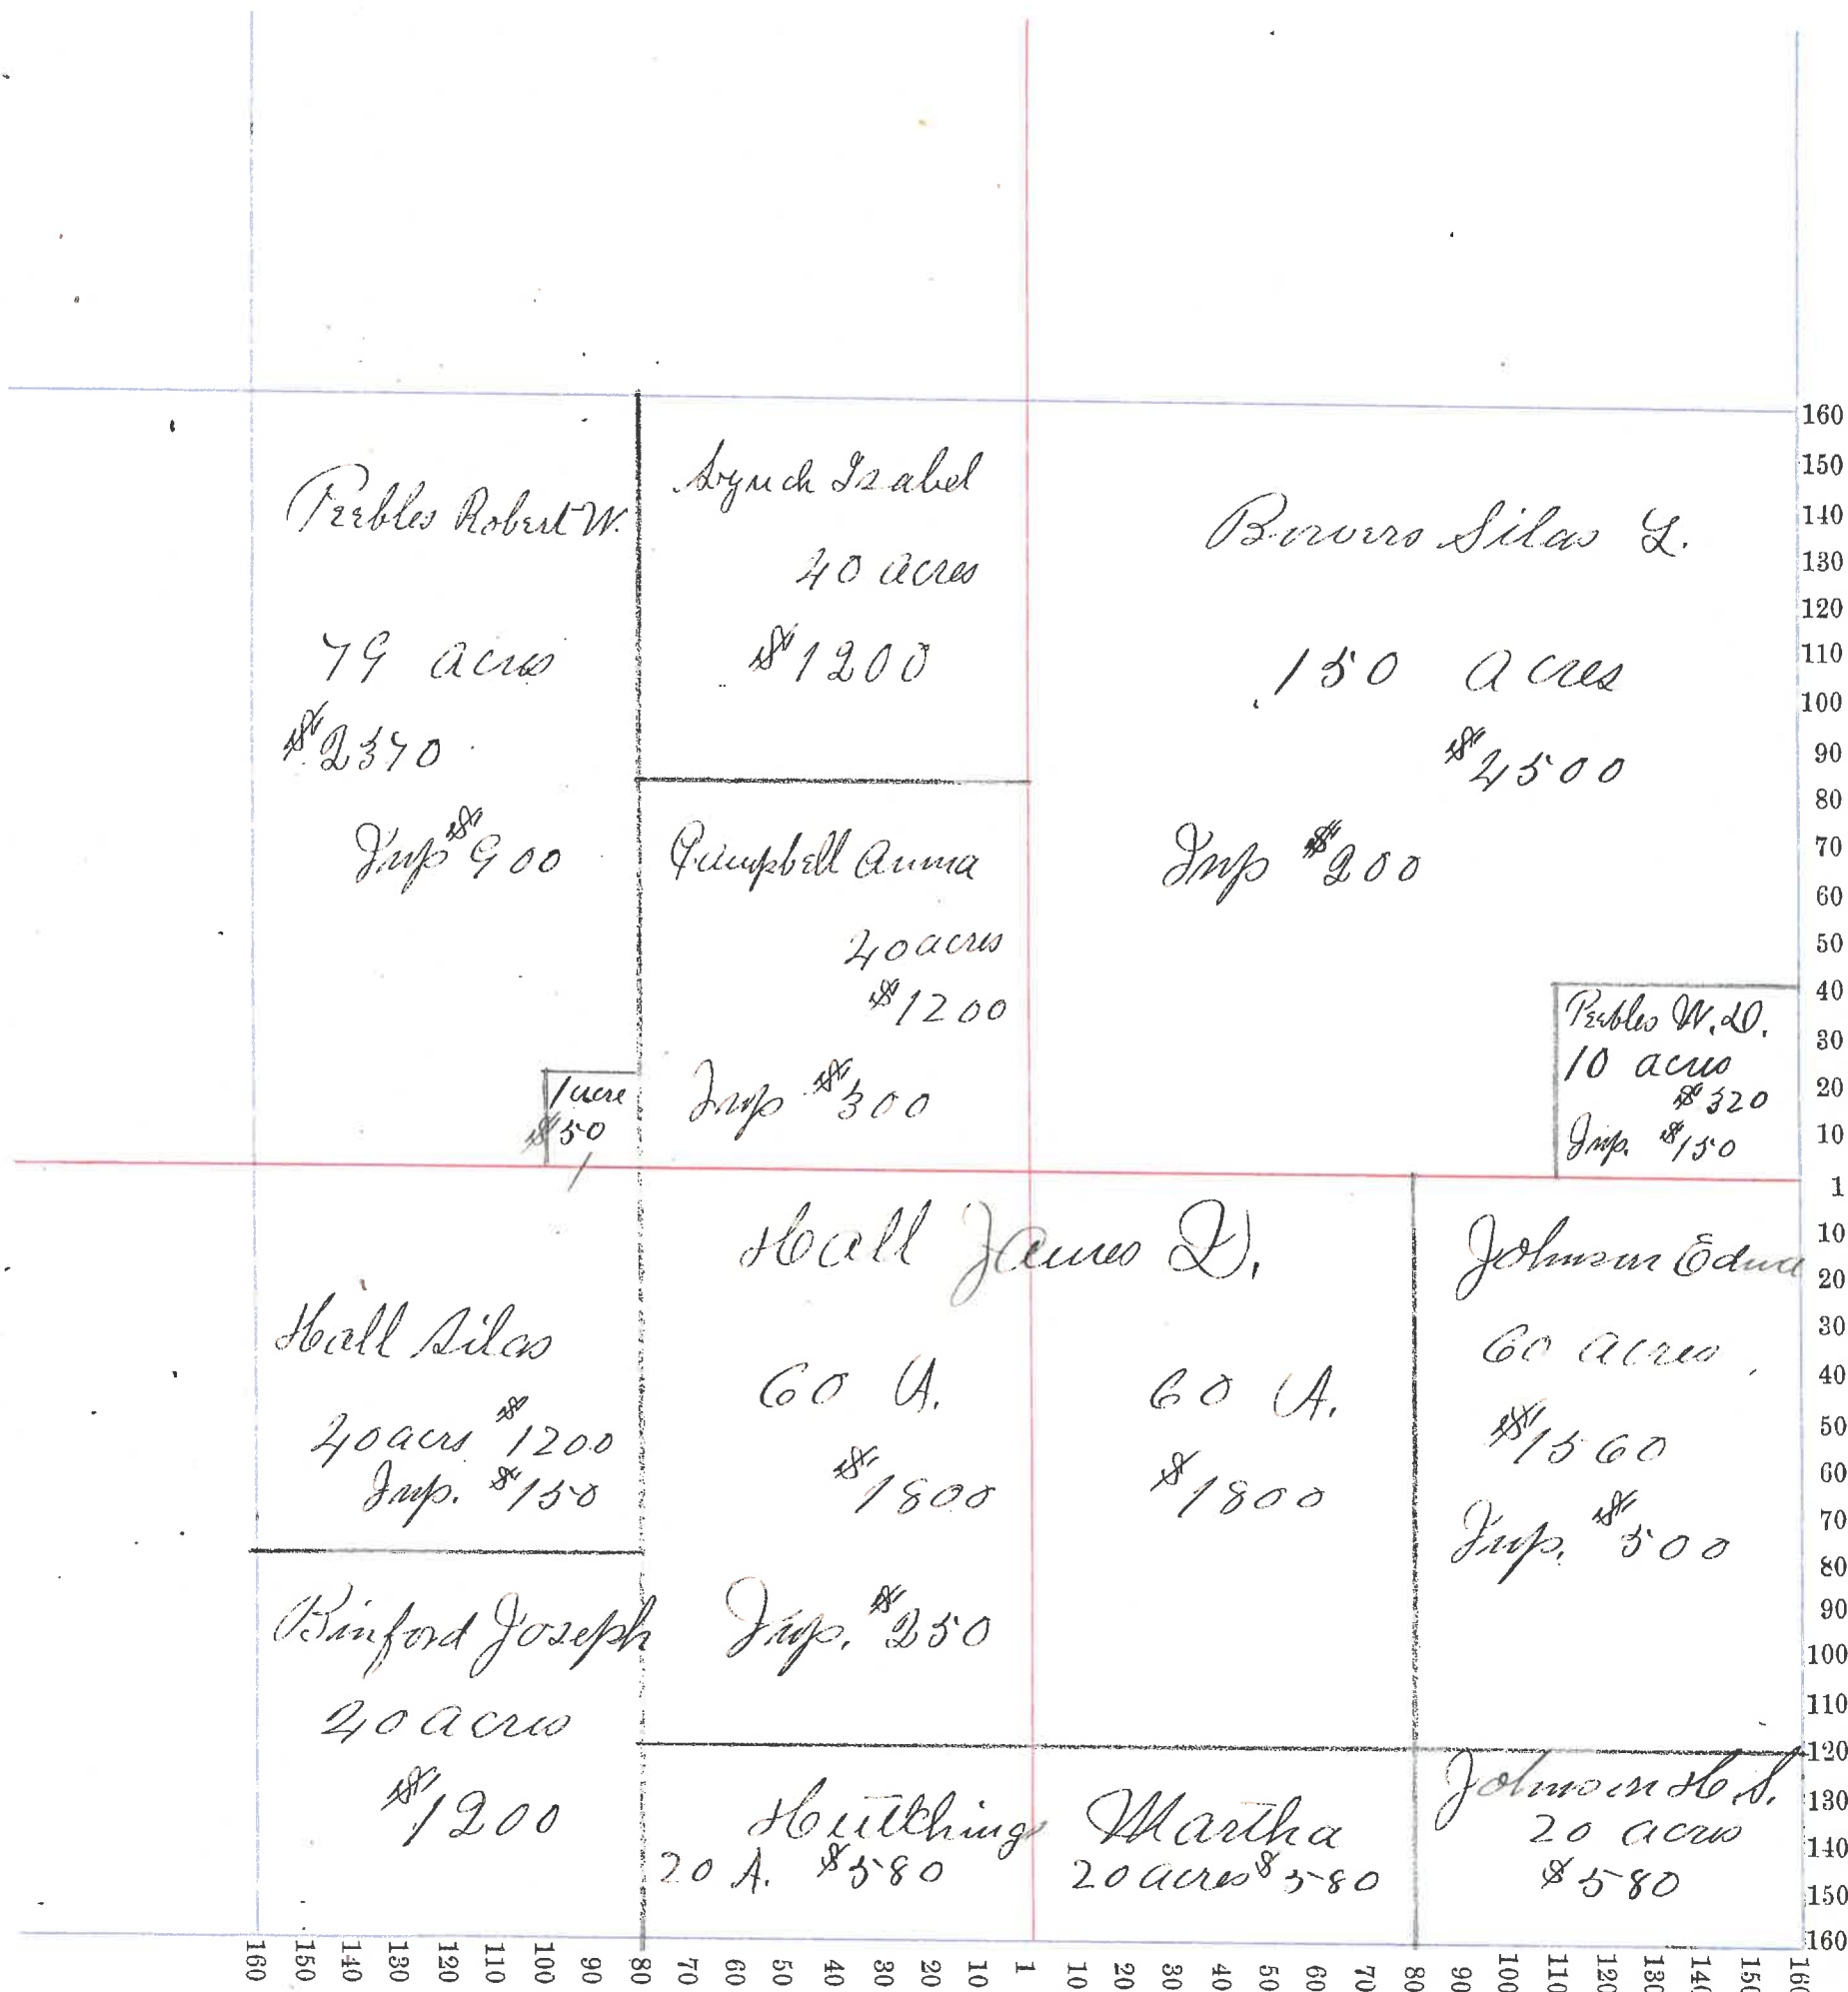 Peebles Robert W.
79 acres
$2370
Imp $900
1 acre
$50
Lynch Isabel
40 acres
$1200
Campbell Anna
40 acres
$1200
Imp $300
Bowers Silas L.
150 acres
$4500
Imp $200
Peebles W. D.
10 acres
$320
Imp. $150
Hall Silas
40 acrs $1200
Imp. $150
Binford Joseph
40 acres
$1200
Hall James D.
60 A. 60 A.
$1800 $1800
Imp. $250
Johnson Edna
60 acres
$1560
Imp. $500
Hutching Martha
20 A. $580 20 acres $580
Johnson H. S.
20 acres
$580
160
150
140
130
120
110
100
90
80
70
60
50
40
30
20
10
1
10
20
30
40
50
60
70
80
90
100
110
120
130
140
150
160
160 150 140 130 120 110 100 90 80 70 60 50 40 30 20 10 1 10 20 30 40 50 60 70 80 90 100 110 120 130 140 150 160